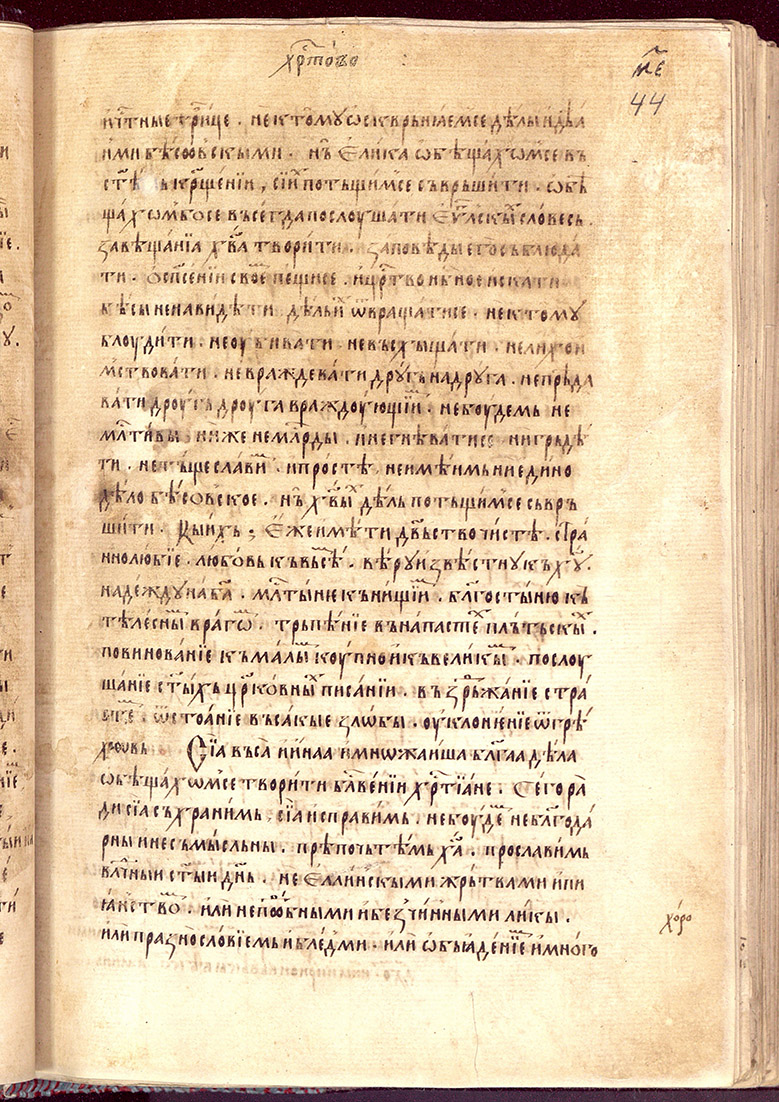 хрⷭ҇то́во
м҃е
44
кі́тные трⷪ҇ице . не ктомꙋ ѡскврьнꙗ́емсе дѣ́лы и дѣа́
ими бѣсѡ́вскыми . нь̀ Єлика ѡбѣща́хѡмсе въ
ст҃ѣ́мь кр҃ще́нїи , сїи̑ потьщи́мсе съврьши́ти . ѡбѣ
ща́хѡм бо се въсегда послꙋшати єѵⷢ҇лскы́х слове́сь .
завѣща́нїа хв҃а твори́ти . заповѣды его съблюда
ти . ѡ спⷭ҇е́нїи свое́м пещи́се . и црⷭ҇тво нбⷭ҇ное иска́ти
бѣ́сы ненави́дѣти дѣ́лыи̑х ѿвраща́тисе . не ктомꙋ̀
блоуди́ти . не оуби́вати . не въсхыща́ти . не лихои
мⷭ҇твова́ти . не враждева́ти дрꙋ́гь на дрꙋга . не прѣда
ва́ти дроуга дроуга враждоу́ющїим . не боу́демь не
млⷭ҇ти́вы ниже немлⷭ҇рды . и не гнѣ́ватисе ни грьдѣ́
ти . не тъщесла́вити . и про́стѣ , не имѣ́имь ни еди́но
дѣ́ло бѣсо́вское . нь̀ хв҃ы́х дѣ́ль потьщи́мсе съвръ
ши́ти . Кыи́хъ ; Є́же имѣ́ти дв҃ьство чи́стѣ . стра
ннолю́бїе . любо́вь къ въсѣ́м . вѣ́рꙋ извѣ́стнꙋ къ хꙋ҃ .
наде́ждꙋ на ба҃ . млⷭ҇ты́ню къ ни́щїим . блг҃осты́ню къ
тѣле́сным врагѡ́м . трьпѣ́нїе въ напа́стех пль́тьскых .
повинова́нїе къ ма́лым коу́пно и къ вели́кым . послоу
ша́нїе ст҃ы́хъ црⷦ҇о́вных писа́нїи . въздрьжа́нїе стра
стем . ѿстоа́нїе въса́кые зло́бы . оуклоне́нїе ѿ грѣ
хо́вь Сїа́ въса̀ и и́наа и мно́жаиша блг҃аа дѣла
ѡбѣща́хѡмсе твори́ти блⷭ҇ве́нїи хрⷭ҇тїа́не . Сего ра
ди сїа съхрани́мь . сїа̀ испра́вимь . не боу́дем неблгⷪ҇да́
рны и несъмы́сльны . прѣпочьтѣ́мь ха҃ . просла́вимь
влⷣчнїи ст҃ыи дн҃ь . не є́ллинскыми жрь́твами и пи
ꙗ́нством . или́ непⷣѡбными и безчи́нными ли́кы .
или празносло́вїемь и бле́дми . или̑ ѡбьꙗде́нїем и мно́го
хо́ро